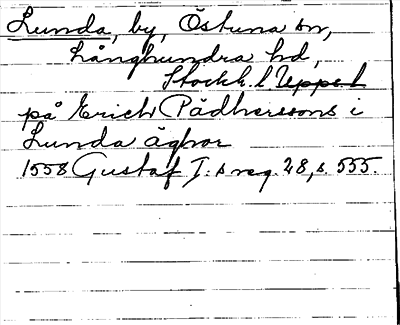 Lunda, by, Östuna sn,
Långhundra hd,
Stockh. l Upps. l
på Erich Pädherssons i
Lunda äghor
1558 Gustaf I:s reg. 28, s. 555.